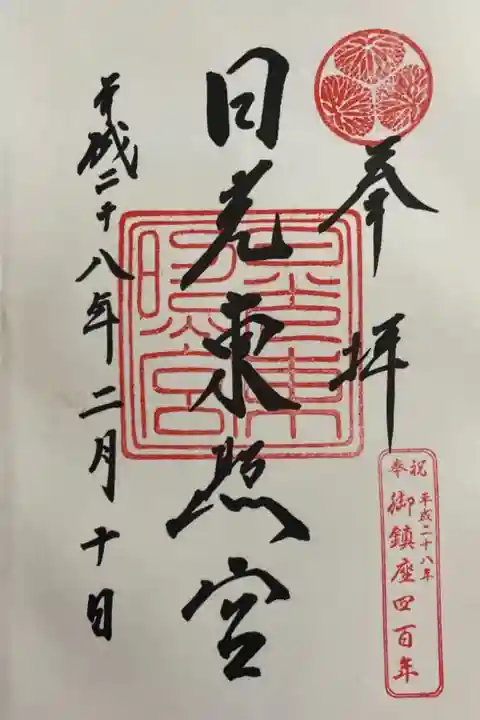 奉拝
日光東照宮
平成二十八年二月十日
奉祝
平成二十八年
御鎮座四百年